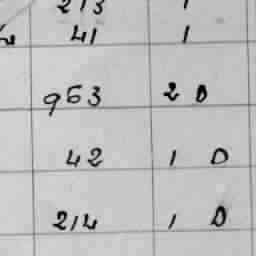 213 1
41 1
953 20
42 1 0
214 1 0